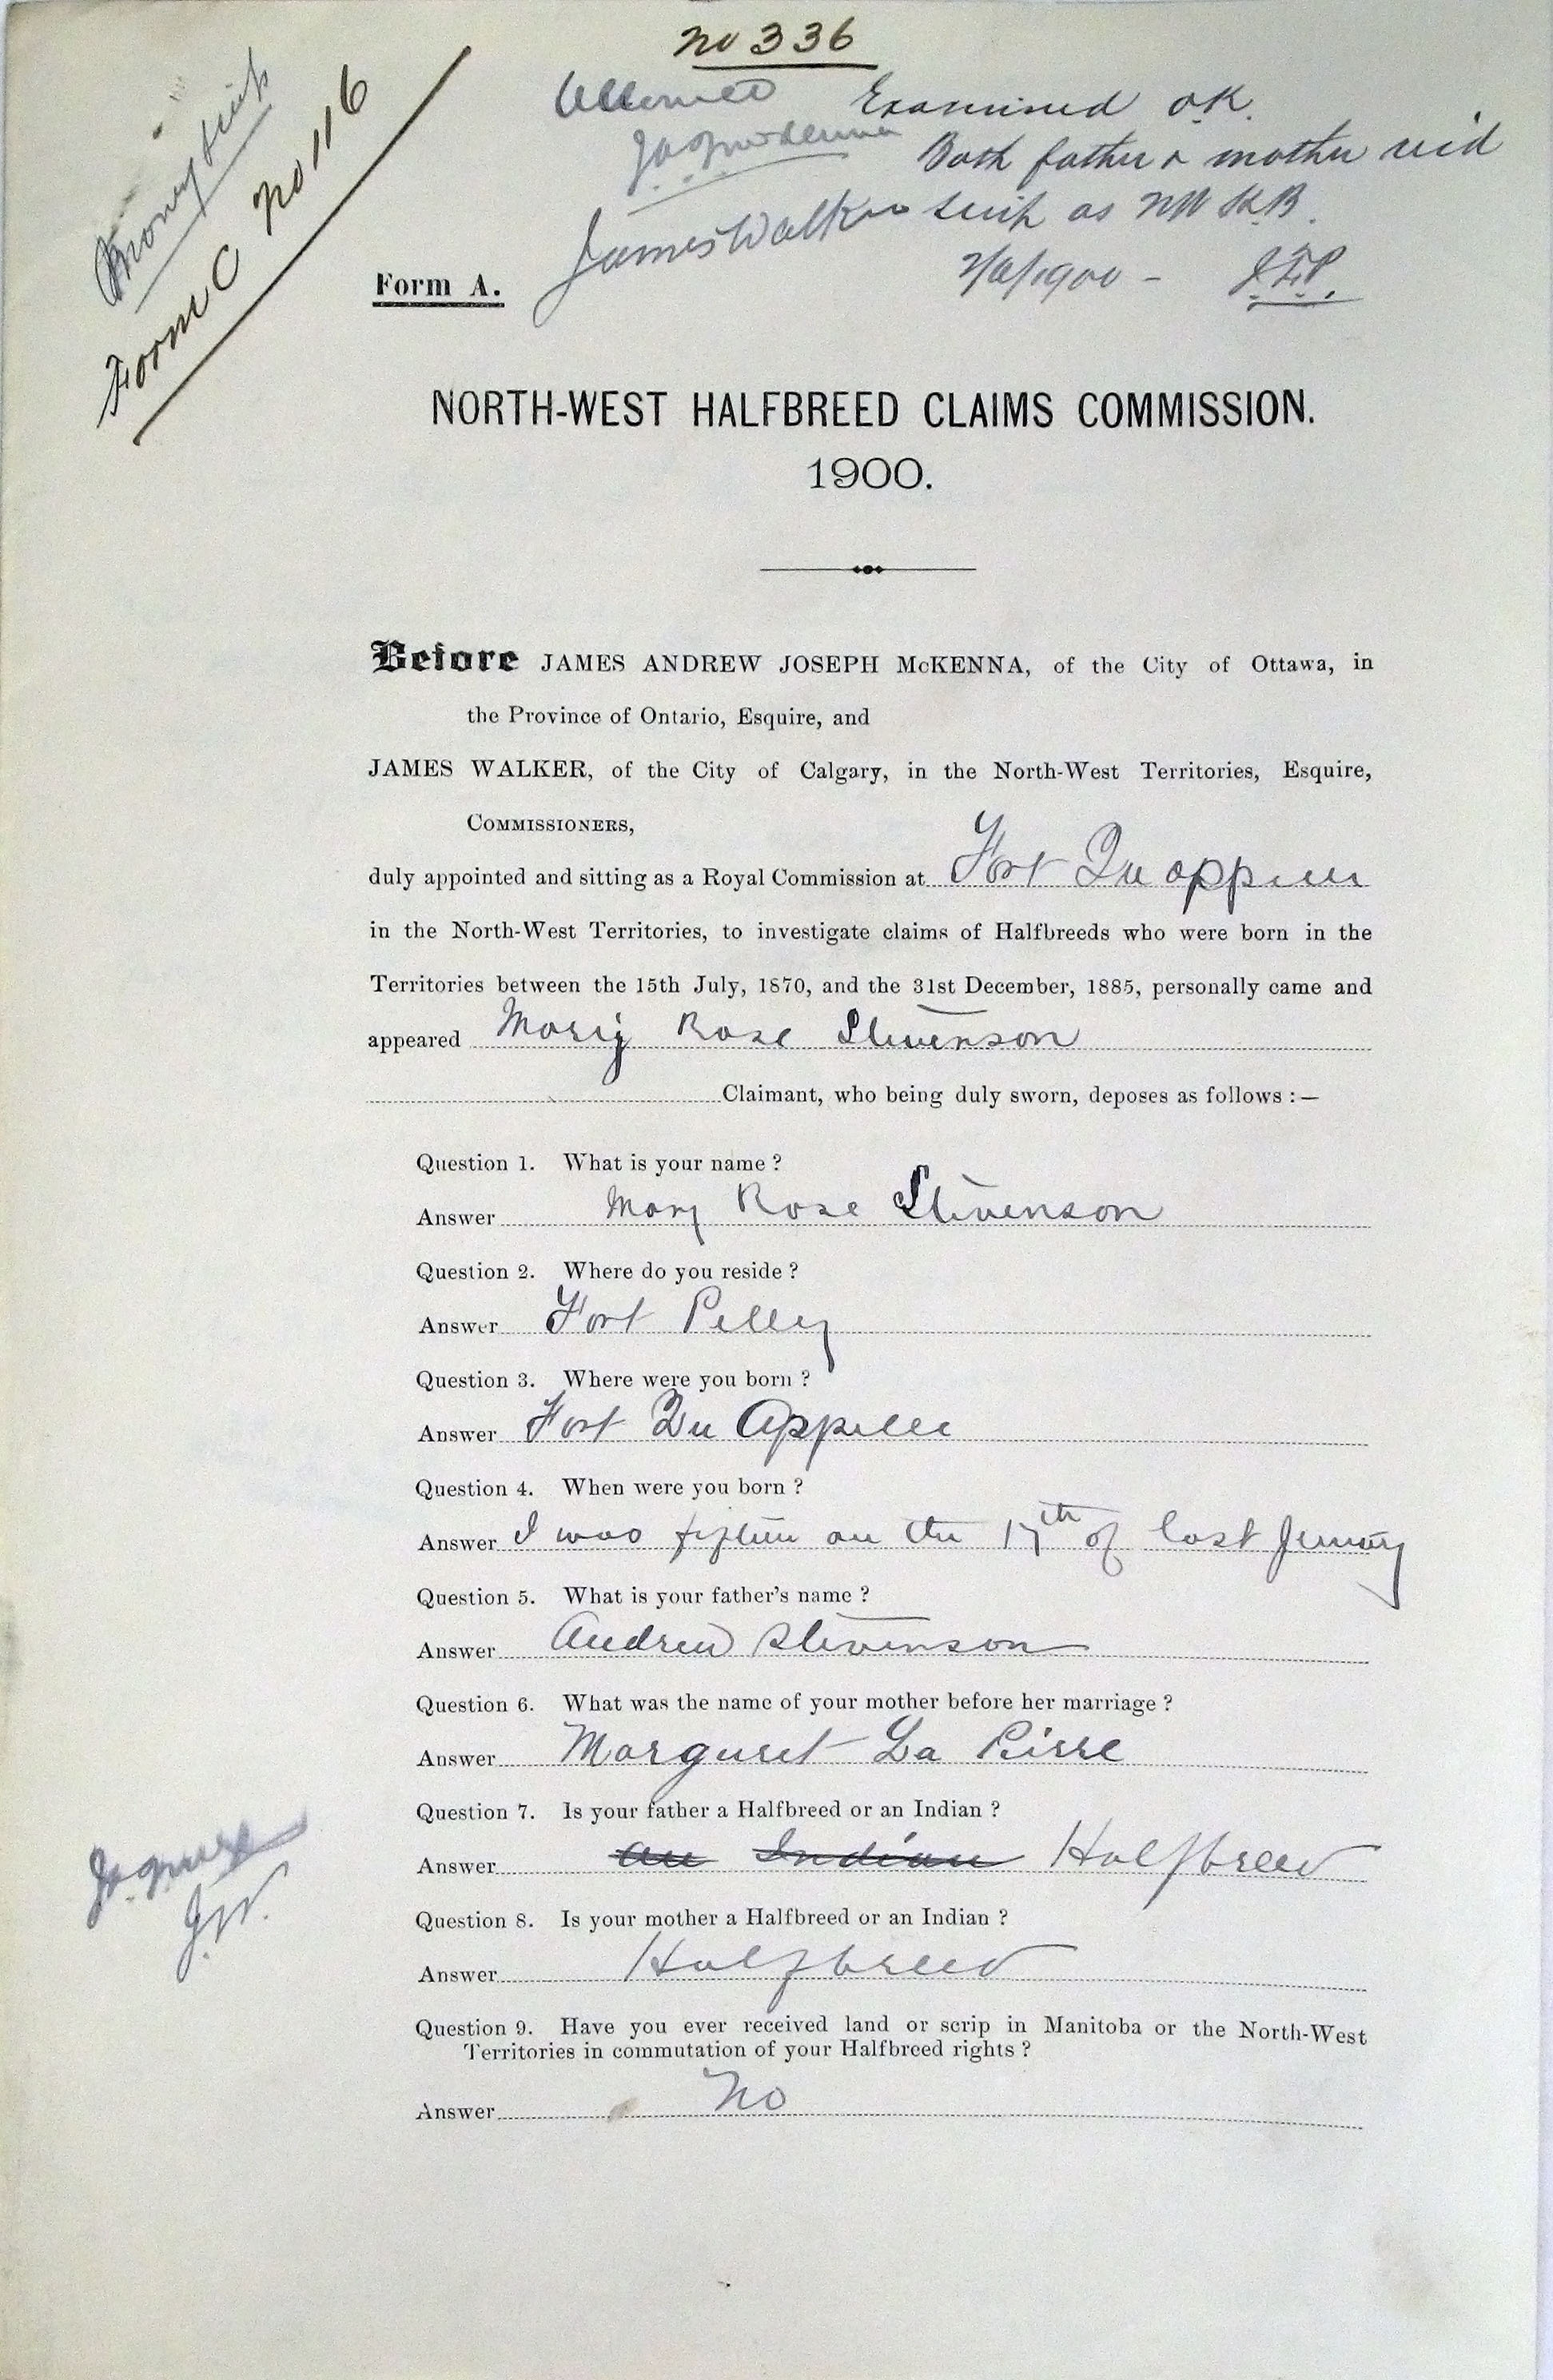 No 336
Allowed Examined O.K.
Both father & mother rec'd
JAJ McKenna
James Walker scrip as NW H.B.
Money scrip
Form C No 116
Form A.
NORTH-WEST HALFBREED CLAIMS COMMISSION.
1900.
Before JAMES ANDREW JOSEPH McKENNA, of the City of Ottawa, in
the Province of Ontario, Esquire, and
JAMES WALKER, of the City of Calgary, in the North-West Territories, Esquire,
COMMISSIONERS,
duly appointed and sitting as a Royal Commission at Fort Qu'appelle
in the North-West Territories, to investigate claims of Halfbreeds who were born in the
Territories between the 15th July, 1870, and the 31st December, 1885, personally came and
appeared Mary Rose Stevenson
Claimant, who being duly sworn, deposes as follows :—
Question 1. What is your name ?
Answer Mary Rose Stevenson
Question 2. Where do you reside ?
Answer Fort Pelly
Question 3. Where were you born ?
Answer Fort Qu Appelle
Question 4. When were you born ?
Answer I was fifteen on the 17th of last January
Question 5. What is your father's name ?
Answer Andrew Stevenson
Question 6. What was the name of your mother before her marriage ?
Answer Marguret La Pierre
Question 7. Is your father a Halfbreed or an Indian ?
Answer an Indian Halfbreed
J.W.
Question 8. Is your mother a Halfbreed or an Indian ?
Answer Halfbreed
Question 9. Have you ever received land or scrip in Manitoba or the North-West
Territories in commutation of your Halfbreed rights ?
Answer No